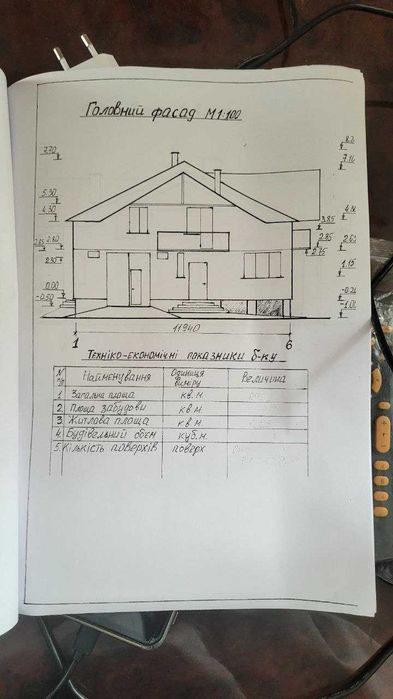 Головний фасад М1:100
7.20
5.30
4.30
2.85 2.80
2.30
0.00
-0.50
3.85
2.85
2.75
1.15
11940
1 6
Техніко-економічні показники б-ку
N п/п Найменування Одиниця виміру Величина
1 Загальна площа кв.м.
2. Площа забудови кв м
3. Житлова площа кв м
4. Будівельний обєм куб.м.
5. Кількість поверхів поверх